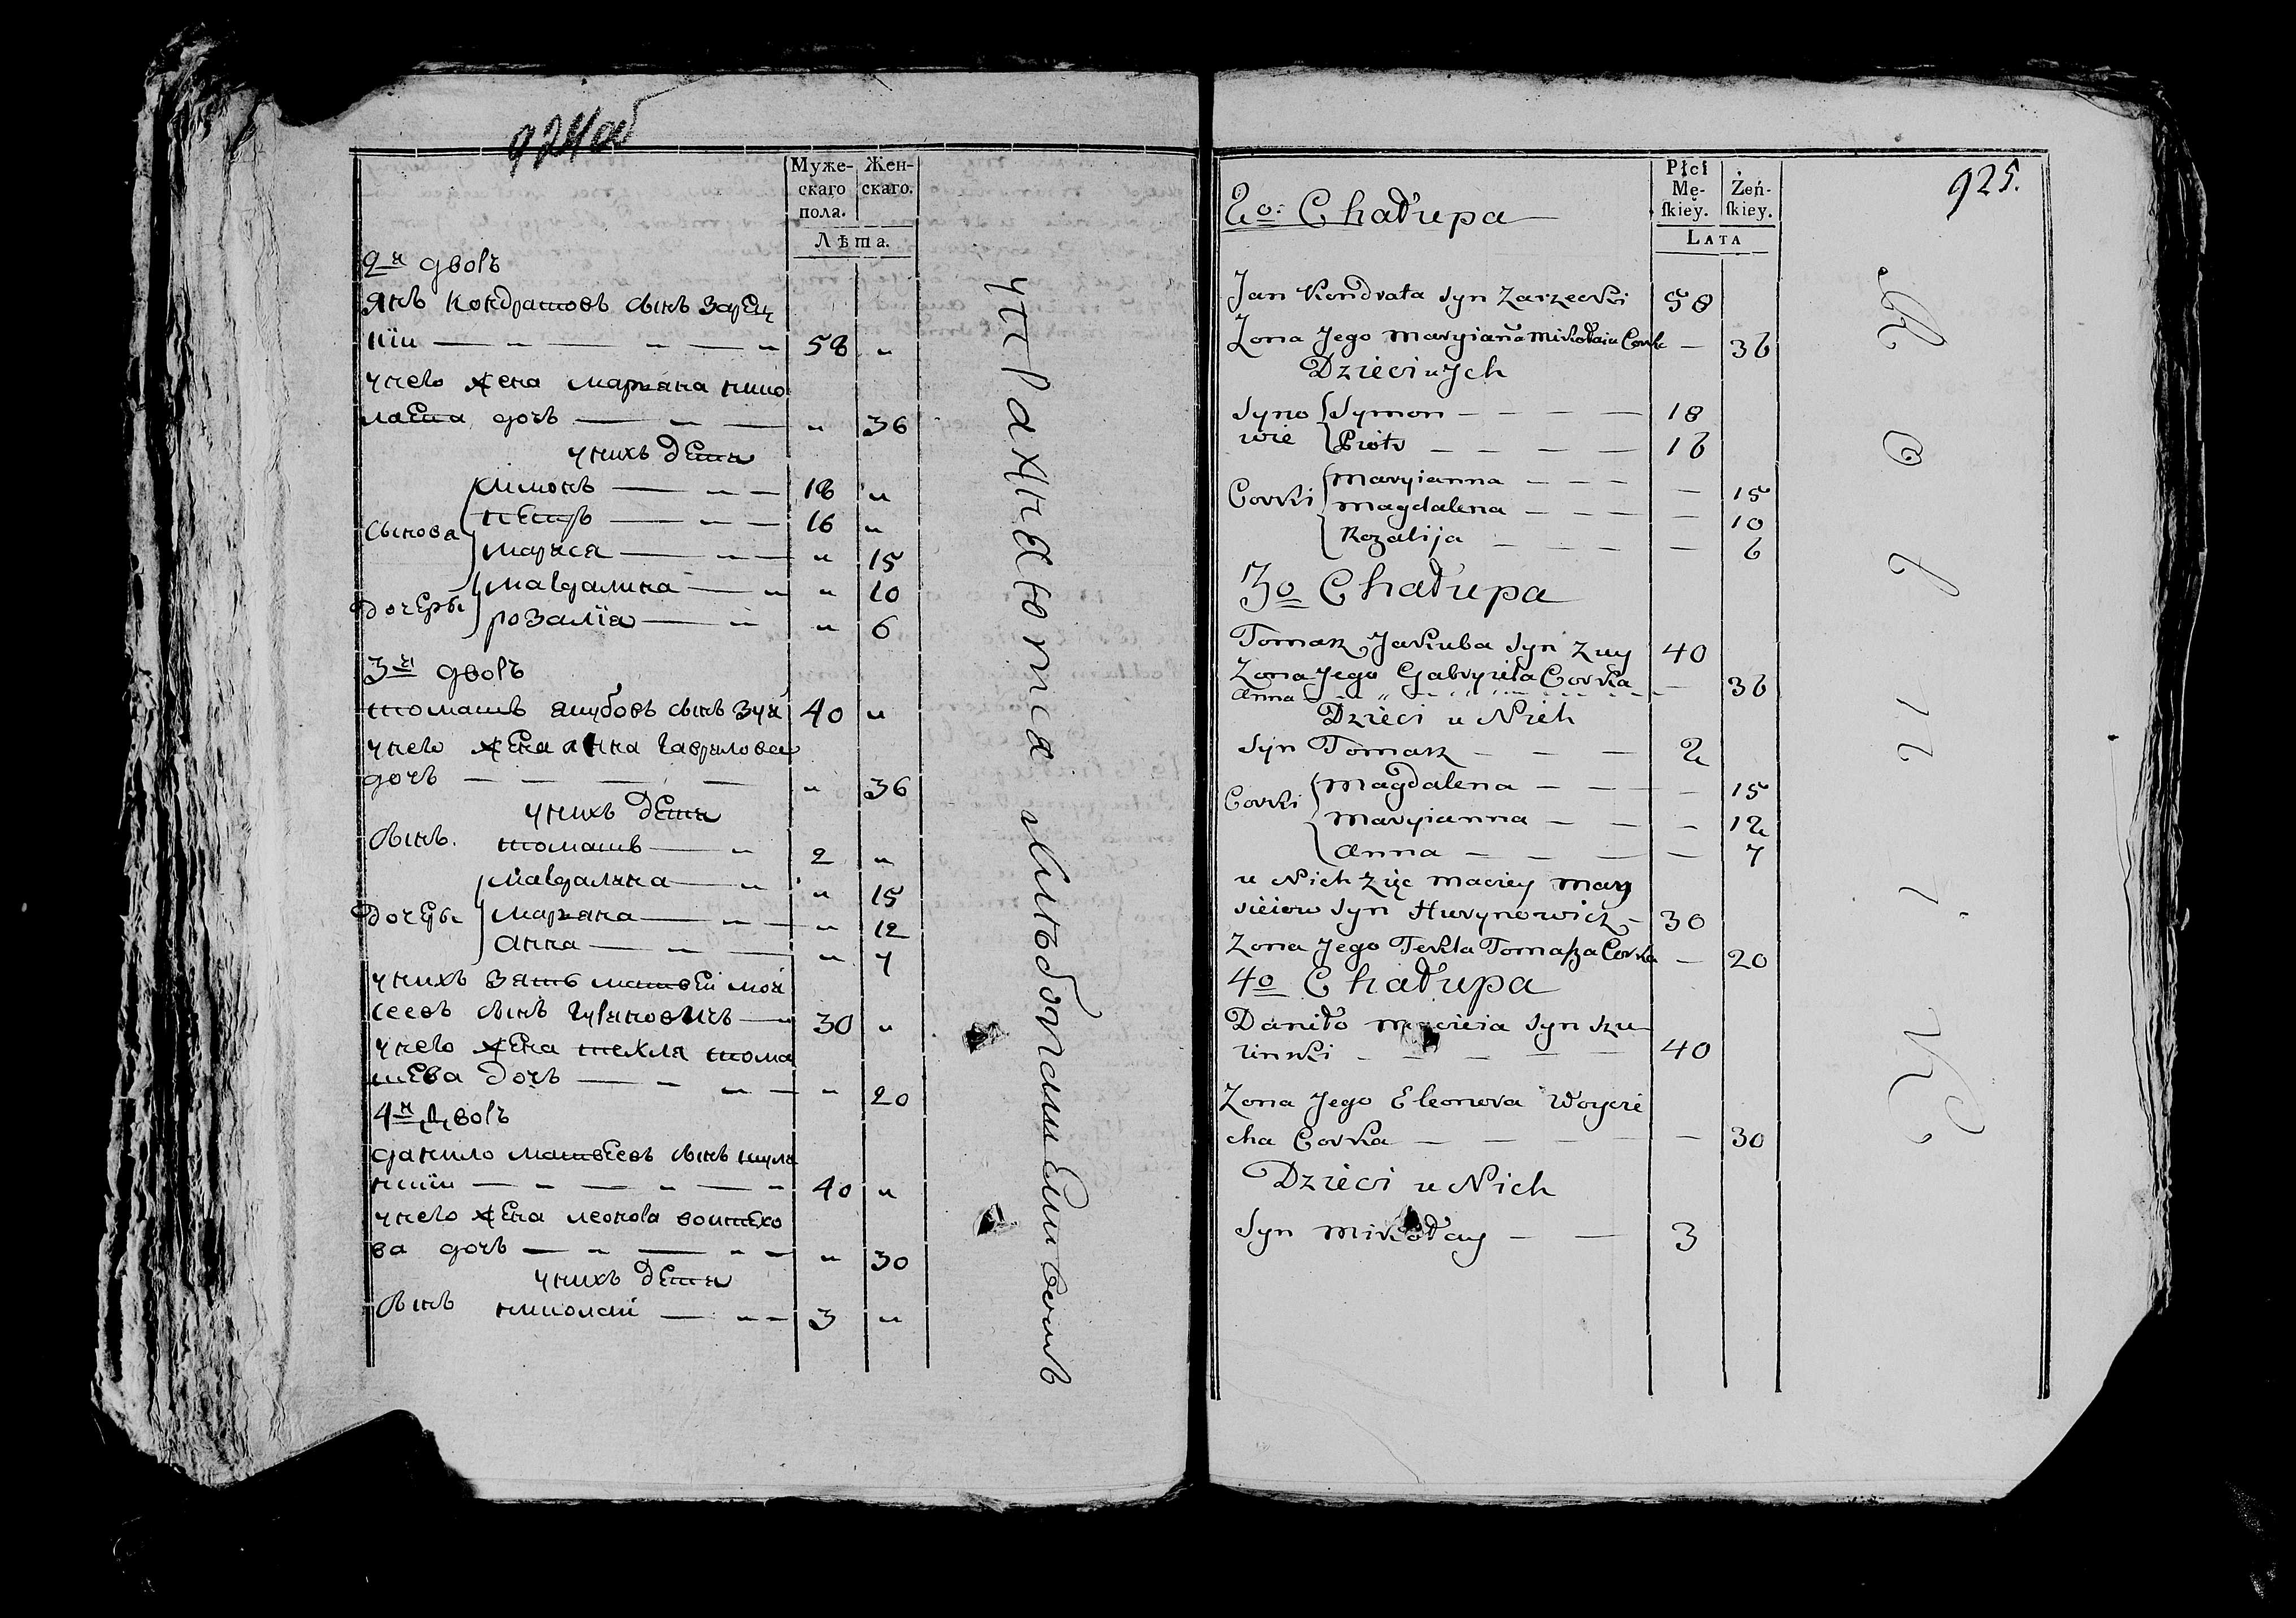 924об
Муже-
скаго
пола.
Жен-
скаго.
Лѣта.
2й дворъ
Янъ Кондратовъ сынъ Зарец
кiи — 58 "
у него жена Марьяна нико
лаева дочь — " 36
у нихъ дети
сынова
Симонъ — 18 "
Петръ — 16 "
Марыся — " 15
дочеры
Магдалина — " 10
розалiа — " 6
3й дворъ
томашъ якубовъ сынъ Зуй 40 "
у него жена анна гаврилова
дочь — " 36
у нихъ дети
сынъ. томашъ — 2 "
дочеры
Магдалина — " 15
Марьяна — " 12
анна — " 7
у нихъ зять матвей мои
сеевъ сынъ — 30 "
у него жена текля тома
шева дочь — " 20
4й дворъ
данило матвеевъ сынъ
40 "
у него жена леонора воитехо
ва дочь — " 30
у нихъ дети
сынъ николай — 3 "
925.
Płci
Mę-
ſkiey.
Żeń-
ſkiey.
LATA
2o: Chałupa
Jan Kondrata Syn Zarzecki 58
Zona Jego Maryiana Mikołaia Cork — 36
Dzieci u Ych
Syno
wie
Symon — 18
Piotr — 16
Corki
Maryianna — 15
Magdalena — 10
Rozalija — 6
3o Chałupa
Tomasz Jakuba Syn Zuy 40
Zona Jego Gabryiela Corka — 36
Anna
Dzieci u Nich
Syn Tomasz — 2
Corki
Magdalena — 15
Maryianna — 12
Anna — 7
u Nich Zięc Maciey May
sieiew Syn Hurynowicz — 30
Zona Jego Tekla Tomaſza Corka — 20
4o Chałupa
Daniło Macieia Syn
40
Zona Jego Eleonora Woycie
cha Corka — 30
Dzieci u Nich
Syn Mikołay — 3